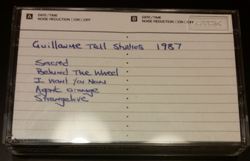 A DATE/TIME
NOISE REDUCTION □ ON □ OFF
B DATE/TIME
NOISE REDUCTION □ ON □ OFF
Guillaume Tell Studios 1987
Sacred
Behind The Wheel
I Want You Now
Agent Orange
Strangelove